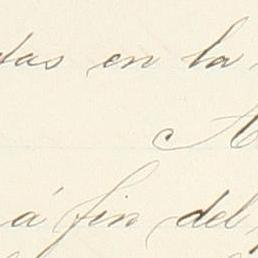 das en la
A
á fin del